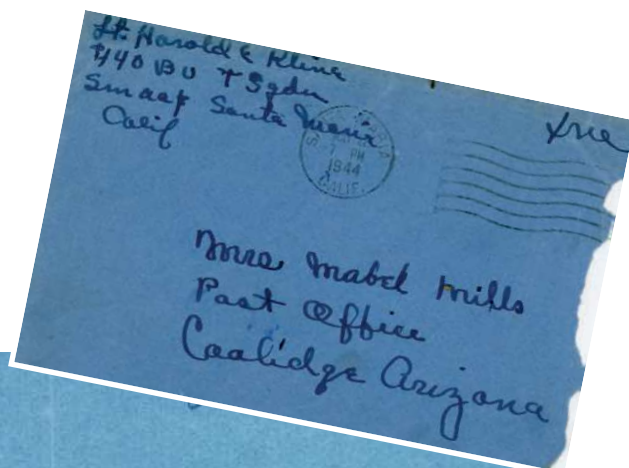 Lt. Harold E Kline
440 BU T Sqdn
Smaaf Santa Maria
Calif
Free
7 PM
1944
CALIF.
Mrs Mabel Mills
Post Office
Coolidge Arizona